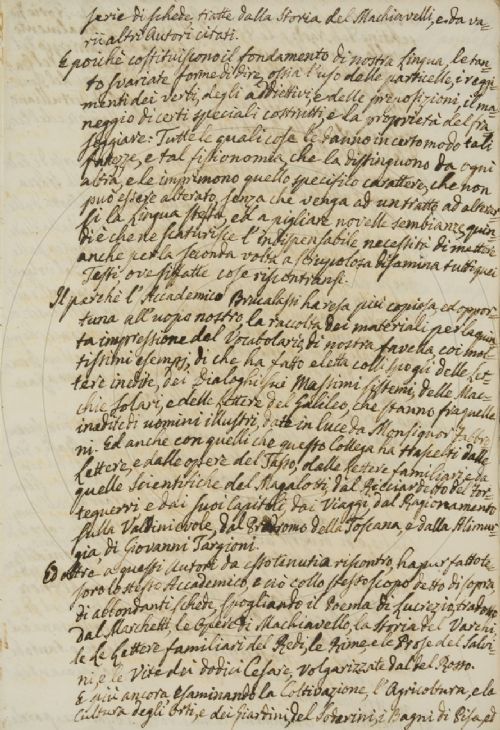 serie di schede, tratte dalla Storia del Machiavelli, e da va-
rii altri Autori citati.
E poichè costituiscono il fondamento di nostra Lingua, le tan-
to svariate forme di dire, ossia l'uso delle particelle, i reggi-
menti dei verbi, degli addiettivi, e delle preposizioni, il ma-
neggio di certi speciali costrutti, e la proprietà del fra-
seggiare: Tutte le quali cose le danno in certo modo tali
fattezze, e tal fisionomia, che la distinguono da ogni
altra, e le imprimono quello specifico carattere, che non
può essere alterato, senza che venga ad un tratto ad alterar-
si la Lingua stessa, ed a pigliare novelle sembianze, quin-
di è che ne scaturisce l'indispensabile necessità di mettere
anche per la seconda volta a scrupolosa disamina tutti quei
Testi ove siffatte cose riscontransi.
Il perchè l'Accademico Brucalassi ha resa più copiosa, ed oppor-
tuna all'uopo nostro, la raccolta dei materiali per la quin-
ta impressione del Vocabolario, di nostra favella, coi mol-
tissimi esempj, di che ha fatto eletta colli spogli delle Let-
tere inedite, dei Dialoghi sui Massimi sistemi, delle Mac-
chie solari, e delle Lettere del Galileo, che stanno fra quelle
inedite di uomini illustri, date in luce da Monsignor Fabbro-
ni. Ed anche con quelli che questo Collega ha trascelti dalle
Lettere, e dalle opere del Tasso, dalle Lettere familiari, e da
quelle Scientifiche del Magalotti, dal Ricciardetto del For-
teguerri e dai suoi Capitoli, dai Viaggi, dal Ragionamento
sulla Valdinievole, dal Prodromo della Toscana, e dalla Alimur-
gia di Giovanni Targioni.
Ed oltre a questi Autori da esso tenuti a riscontro, ha pur fatto te-
soro lo stesso Accademico, e ciò collo stesso scopo detto di sopra
di abbondanti schede spogliando il Poema di Lucrezio tradotto
Dal Marchetti, le Opere di Machiavello, la Storia del Varchi,
le Lettere familiari del Redi, le Rime, e le Prose del Salvi-
ni, e le Vite dei dodici Cesare, Volgarizzate dal del Rosso.
E più ancora esaminando la Coltivazione, l'Agricoltura, e le
Cultura degli Orti, e dei Giardini, del Soderini, i Bagni di Pisa, ed